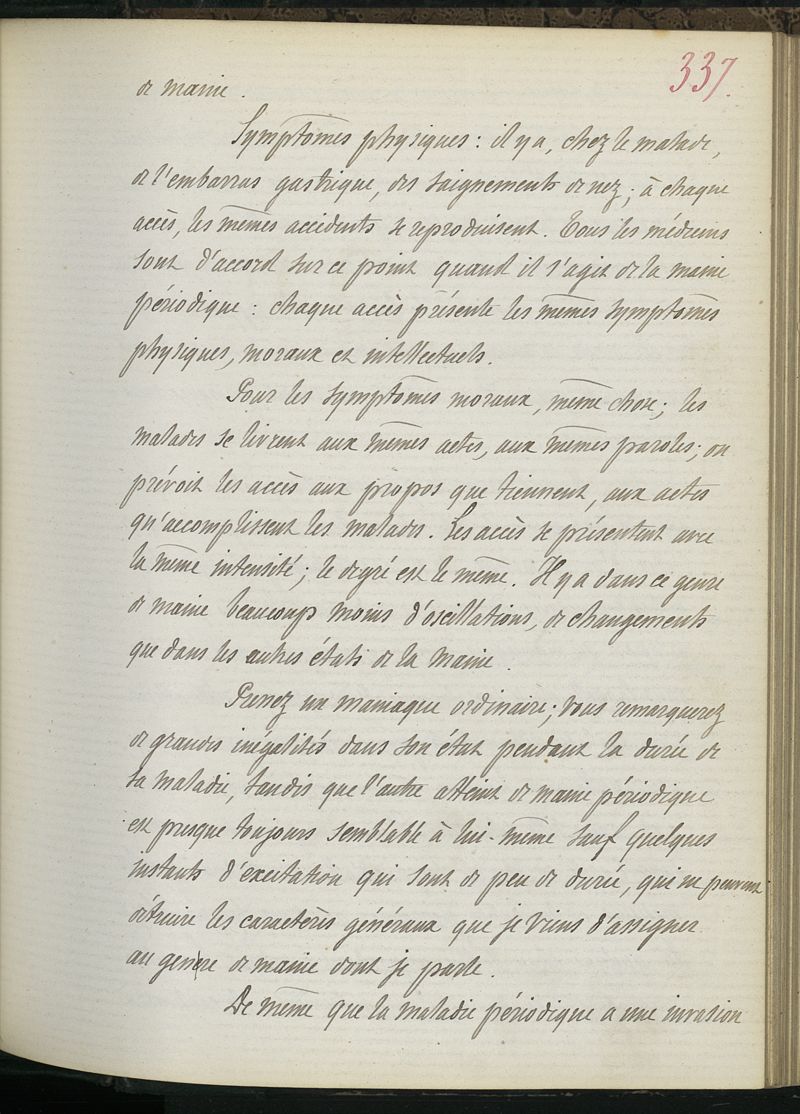 337.
de manie.
Symptômes physiques : il y a, chez le malade,
de l'embarras gastrique, des saignements de nez ; à chaque
accès, les mêmes accidents se reproduisent. Tous les médecins
sont d'accord sur ce point quand il s'agit de la manie
périodique : chaque accès présente les mêmes symptômes
physiques, moraux et intellectuels.
Pour les symptômes moraux, même chose ; les
malades se livrent aux mêmes actes, aux mêmes paroles ; on
prévoit les accès aux propos que tiennent, aux actes
qu'accomplissent les malades. Les accès se présentent avec
la même intensité ; le degré est le même. Il y a dans ce genre
de manie beaucoup moins d'oscillations, de changements
que dans les autres états de la manie.
Prenez un maniaque ordinaire ; vous remarquerez
de grandes inégalités dans son état pendant la durée de
sa maladie, tandis que l'autre atteint de manie périodique
est presque toujours semblable à lui-même sauf quelques
instants d'excitation qui sont de peu de durée, qui ne peuvent
détruire les caractères généraux que je viens d'assigner
au genre de manie dont je parle.
De même que la maladie périodique a une invasion